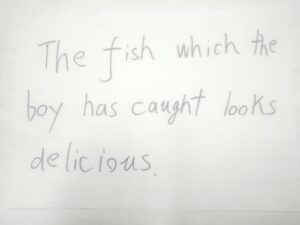 The fish which the
boy has caught looks
delicious.